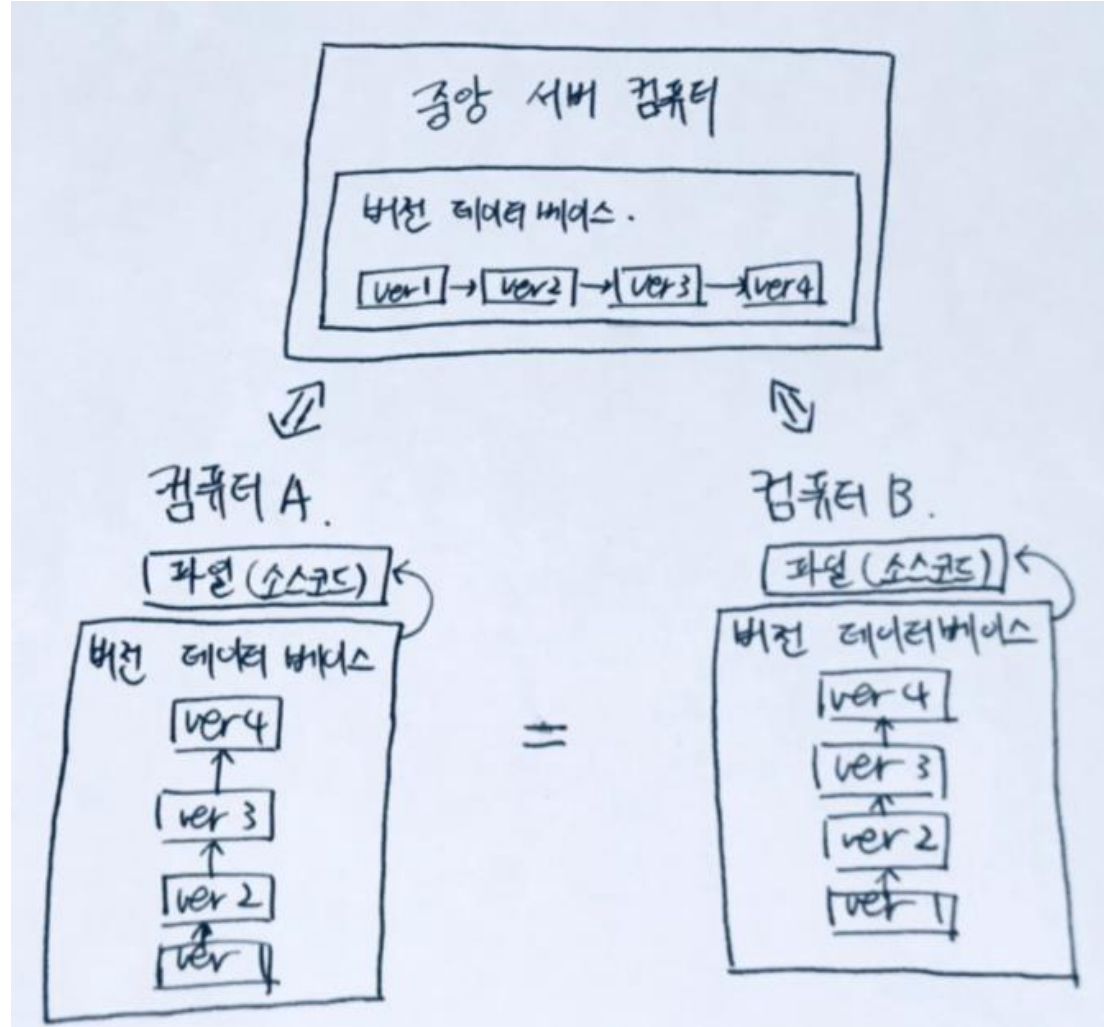 중앙 서버 컴퓨터
버전 데이터 베이스.
ver1 → ver2 → ver3 → ver4
컴퓨터 A.
파일 (소스코드)
버전 데이터 베이스
ver 4
ver 3
ver 2
ver 1
=
컴퓨터 B.
파일 (소스코드)
버전 데이터베이스
ver 4
ver 3
ver 2
ver 1